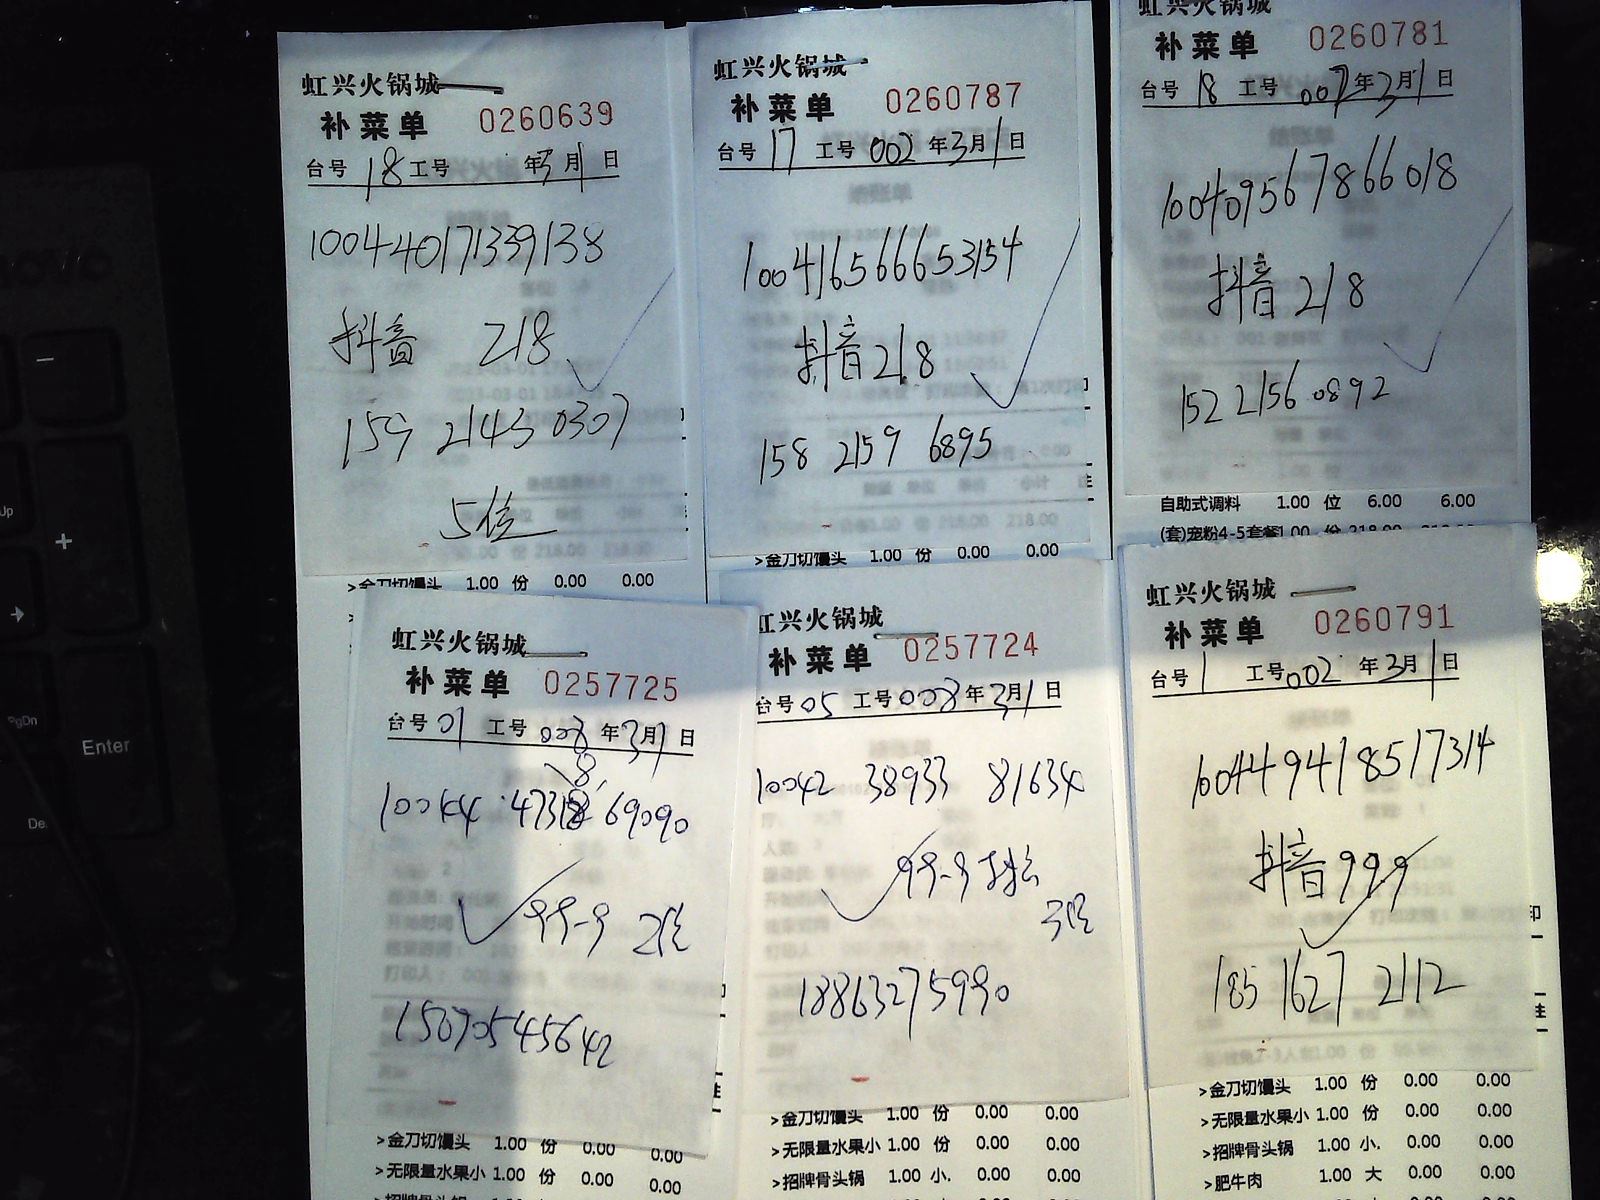 虹兴火锅城
补菜单 0260639
台号 18 工号 年3月1日
100440171339138
抖音 218
159 2143 0307
5位
>金刀切馒头 1.00 份 0.00 0.00
虹兴火锅城
补菜单 0260787
台号 17 工号 002 年3月1日
1004165666653154
抖音218
158 2159 6895
>金刀切馒头 1.00 份 0.00 0.00
虹兴火锅城
补菜单 0260781
台号 18 工号 002年3月1日
100409567866018
抖音218
152 2156 0892
自助式调料 1.00 位 6.00 6.00
(套)宠粉4-5套餐1.00 份 218.00
虹兴火锅城
补菜单 0257725
台号 01 工号 008 年3月1日
69090
99-9 2位
15090545642
>金刀切馒头 1.00 份 0.00 0.00
>无限量水果小 1.00 份 0.00 0.00
招牌骨头锅 1.00 小.
虹兴火锅城
补菜单 0257724
台号05 工号008年3月1日
10042 38933 81634
99-9 抖音
3位
18863275990
>金刀切馒头 1.00 份 0.00 0.00
>无限量水果小 1.00 份 0.00 0.00
>招牌骨头锅 1.00 小. 0.00 0.00
虹兴火锅城
补菜单 0260791
台号 1 工号002 年3月1日
100449418517314
抖音99.9
185 1627 2112
>金刀切馒头 1.00 份 0.00 0.00
>无限量水果小 1.00 份 0.00 0.00
>招牌骨头锅 1.00 小. 0.00 0.00
>肥牛肉 1.00 大 0.00 0.00
Enter